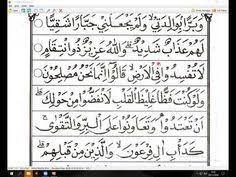 وَبَرًّا بِوَالِدَتِيْ وَلَمْ يَجْعَلْنِيْ جَبَّارًا شَقِيًّا
لَهُمْ عَذَابٌ شَدِيْدٌ ۗ وَاللّٰهُ عَزِيْزٌ ذُو انْتِقَامٍ
لَا تُفْسِدُوْا فِي الْاَرْضِ ۙ قَالُوْٓا اِنَّمَا نَحْنُ مُصْلِحُوْنَ
وَلَوْ كُنْتَ فَظًّا غَلِيْظَ الْقَلْبِ لَانْفَضُّوْا مِنْ حَوْلِكَ
اَنْ تَعْتَدُوْا ۘ وَتَعَاوَنُوْا عَلَى الْبِرِّ وَالتَّقْوٰى
كَدَأْبِ اٰلِ فِرْعَوْنَ ۙ وَالَّذِيْنَ مِنْ قَبْلِهِمْ